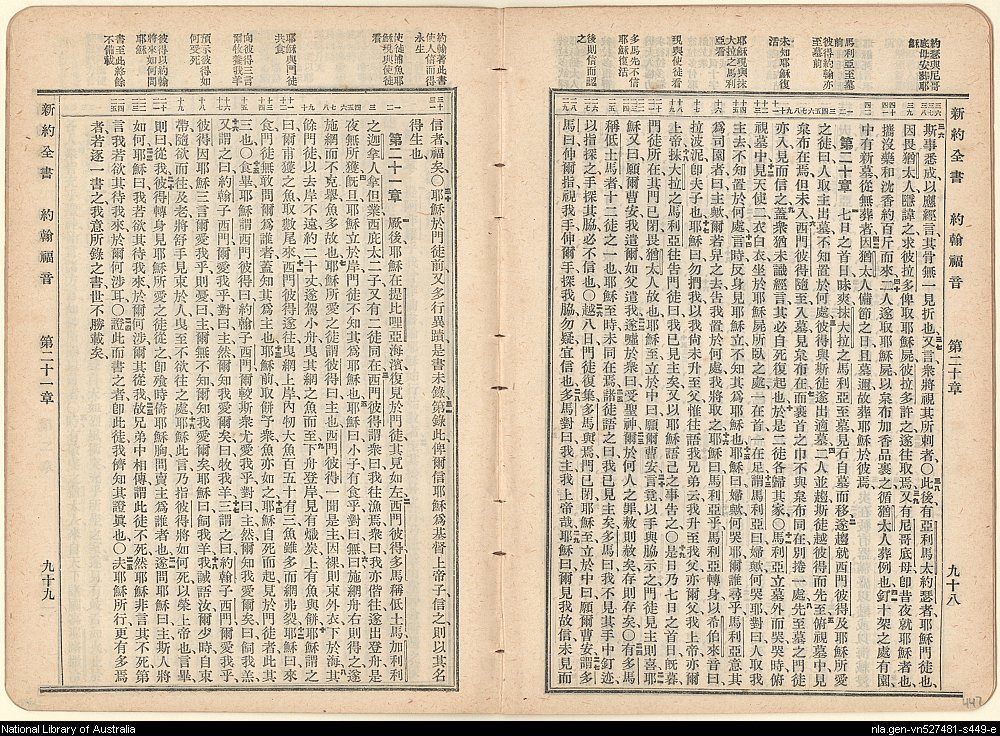 新約全書 約翰福音 第二十章 九十八
約瑟與尼哥
底母安葬耶
穌
馬利亞至墓
前
彼得約翰亦
至墓前
未知耶穌復
活
耶穌現與抹
大拉之馬利
亞看
現與使徒看
多馬先不信
耶穌復活
後則信而認
之
斯事悉成以應經言其骨無一見折也又言衆將視其所刺者〇此後有亞利馬太約瑟者耶穌門徒也
因畏猶太人隱諱之求彼拉多俾取耶穌屍彼拉多許之遂往取焉又有尼哥底母卽昔夜就耶穌者也
攜沒藥和沈香約百斤而來二人遂取耶穌屍以枲布加香品裹之循猶太人葬例也釘十架之處有園
中有新墓從無葬者因猶太人備節之日且墓邇故葬耶穌於彼焉
第二十章 七日之首日昧爽抹大拉之馬利亞至墓見石自墓而移遂趨就西門彼得及耶穌所愛
之徒曰人取主出墓不知置於何處彼得與斯徒遂出適墓二人並趨斯徒越彼得而先至墓俯視墓中見
枲布在焉但未入西門彼得隨至入墓見枲布在而裹首之巾不與枲布同在別捲一處先至墓之門徒
亦入見而信之蓋衆猶未識經言其必自死復起也於是二徒各歸其家〇馬利亞立墓外而哭哭時俯
視墓中見天使二衣白衣坐於耶穌屍所臥之處一在首一在足謂馬利亞曰婦歟何哭耶對曰人取我
主去不知置於何處言時反身見耶穌立不知其爲耶穌也耶穌曰婦歟何哭耶爾誰尋乎馬利亞意其
爲司園者曰主歟爾若舁之去告我置於何處我將取之耶穌曰馬利亞乎馬利亞轉身以希伯來音曰
拉波泥卽夫子也耶穌曰勿捫我以我尚未升至父惟往語我兄弟云我升至我父亦爾父我上帝亦爾
上帝抹大拉之馬利亞往告門徒曰我已見主矣又以耶穌語己之事告之〇是日乃七日之首日旣暮
門徒所在其門已閉畏猶太人故也耶穌至立於中曰願爾曹安言竟以手與脇示之門徒見主則喜耶
穌又曰願爾曹安我遣爾如父遣我遂噓於衆曰受聖神爾於何人之罪赦則赦矣存則存矣〇有多馬
稱低土馬者十二徒之一也耶穌至時未同在焉諸徒語之曰我已見主矣多馬曰我不見其手中釘迹
以指探之手探其脇必不信也〇越八日門徒復集多馬與焉門已閉耶穌至立於中曰願爾曹安謂多
馬曰伸爾指視我手伸爾手探我脇勿疑宜信也多馬對曰我主我上帝哉耶穌曰爾見我故信未見而
約翰著此書
使人信而得
永生
使徒捕魚耶
穌現與使徒
看
耶穌與門徒
共食
向彼得三言
爾牧養我羊
預示彼得如
何受死
彼得以約翰
將來如何問
耶穌
書至此終餘
不備載
信者福矣〇耶穌於門徒前又多行異蹟是書未錄第錄此俾爾信耶穌爲基督上帝子信之則以其名
得生也
第二十一章 厥後耶穌在提比哩亞海濱復見於門徒其見如左西門彼得多馬稱低土馬加利利
之迦拿人拿但業西庇太二子又有二徒同在西門彼得謂衆曰我往漁焉衆曰我亦偕往遂出登舟是
夜無所獲旣旦耶穌立於岸門徒不知其爲耶穌也耶穌曰小子有食乎對曰無曰施網舟右則得之遂
施網而不克舉魚多故也耶穌所愛之徒謂彼得曰主也西門彼得一聞是主因裸則束外衣下於海其
餘門徒以去岸不遠約二十丈遂駕小舟曳其網之魚而至下舟登岸見有熾炭上有魚與餅耶穌謂之
曰爾甫獲之魚取數尾來西門彼得遂往曳網上岸內牣大魚百五十有三魚雖多而網弗裂耶穌曰來
食門徒無敢問爾爲誰者蓋知其爲主也耶穌前取餅予衆魚亦如之耶穌自死而起見於門徒者此其
三也〇食畢耶穌謂西門彼得曰約翰子西門爾較斯衆尤愛我乎對曰主然爾知我愛爾矣曰飼我羔
又謂之曰約翰子西門爾愛我乎對曰主然爾知我愛爾矣曰牧我羊三謂之曰約翰子西門爾愛我乎
彼得因耶穌三言爾愛我乎則憂曰主爾無不知爾知我愛爾矣耶穌曰飼我羊我誠語汝爾少時自束
帶隨欲而往及老將舒手見束於人曳至不欲往之處耶穌此言乃指彼得將如何死以榮上帝也言畢
則曰從我彼得轉身見耶穌所愛之徒從之卽飱時倚耶穌胸問賣主爲誰者也遂問耶穌曰主斯人將
如何耶穌曰我若欲其待我來於爾何涉爾其從我故兄弟中相傳謂此徒不死然耶穌非言其不死第
言我若欲其待我來於爾何涉耳〇證此而書之者卽此徒我儕知其證眞也〇夫耶穌所行更有多焉
者若逐一書之我意所錄之書世不勝載矣
新約全書 約翰福音 第二十一章 九十九
447
National Library of Australia
nla.gen-vn527481-s449-e